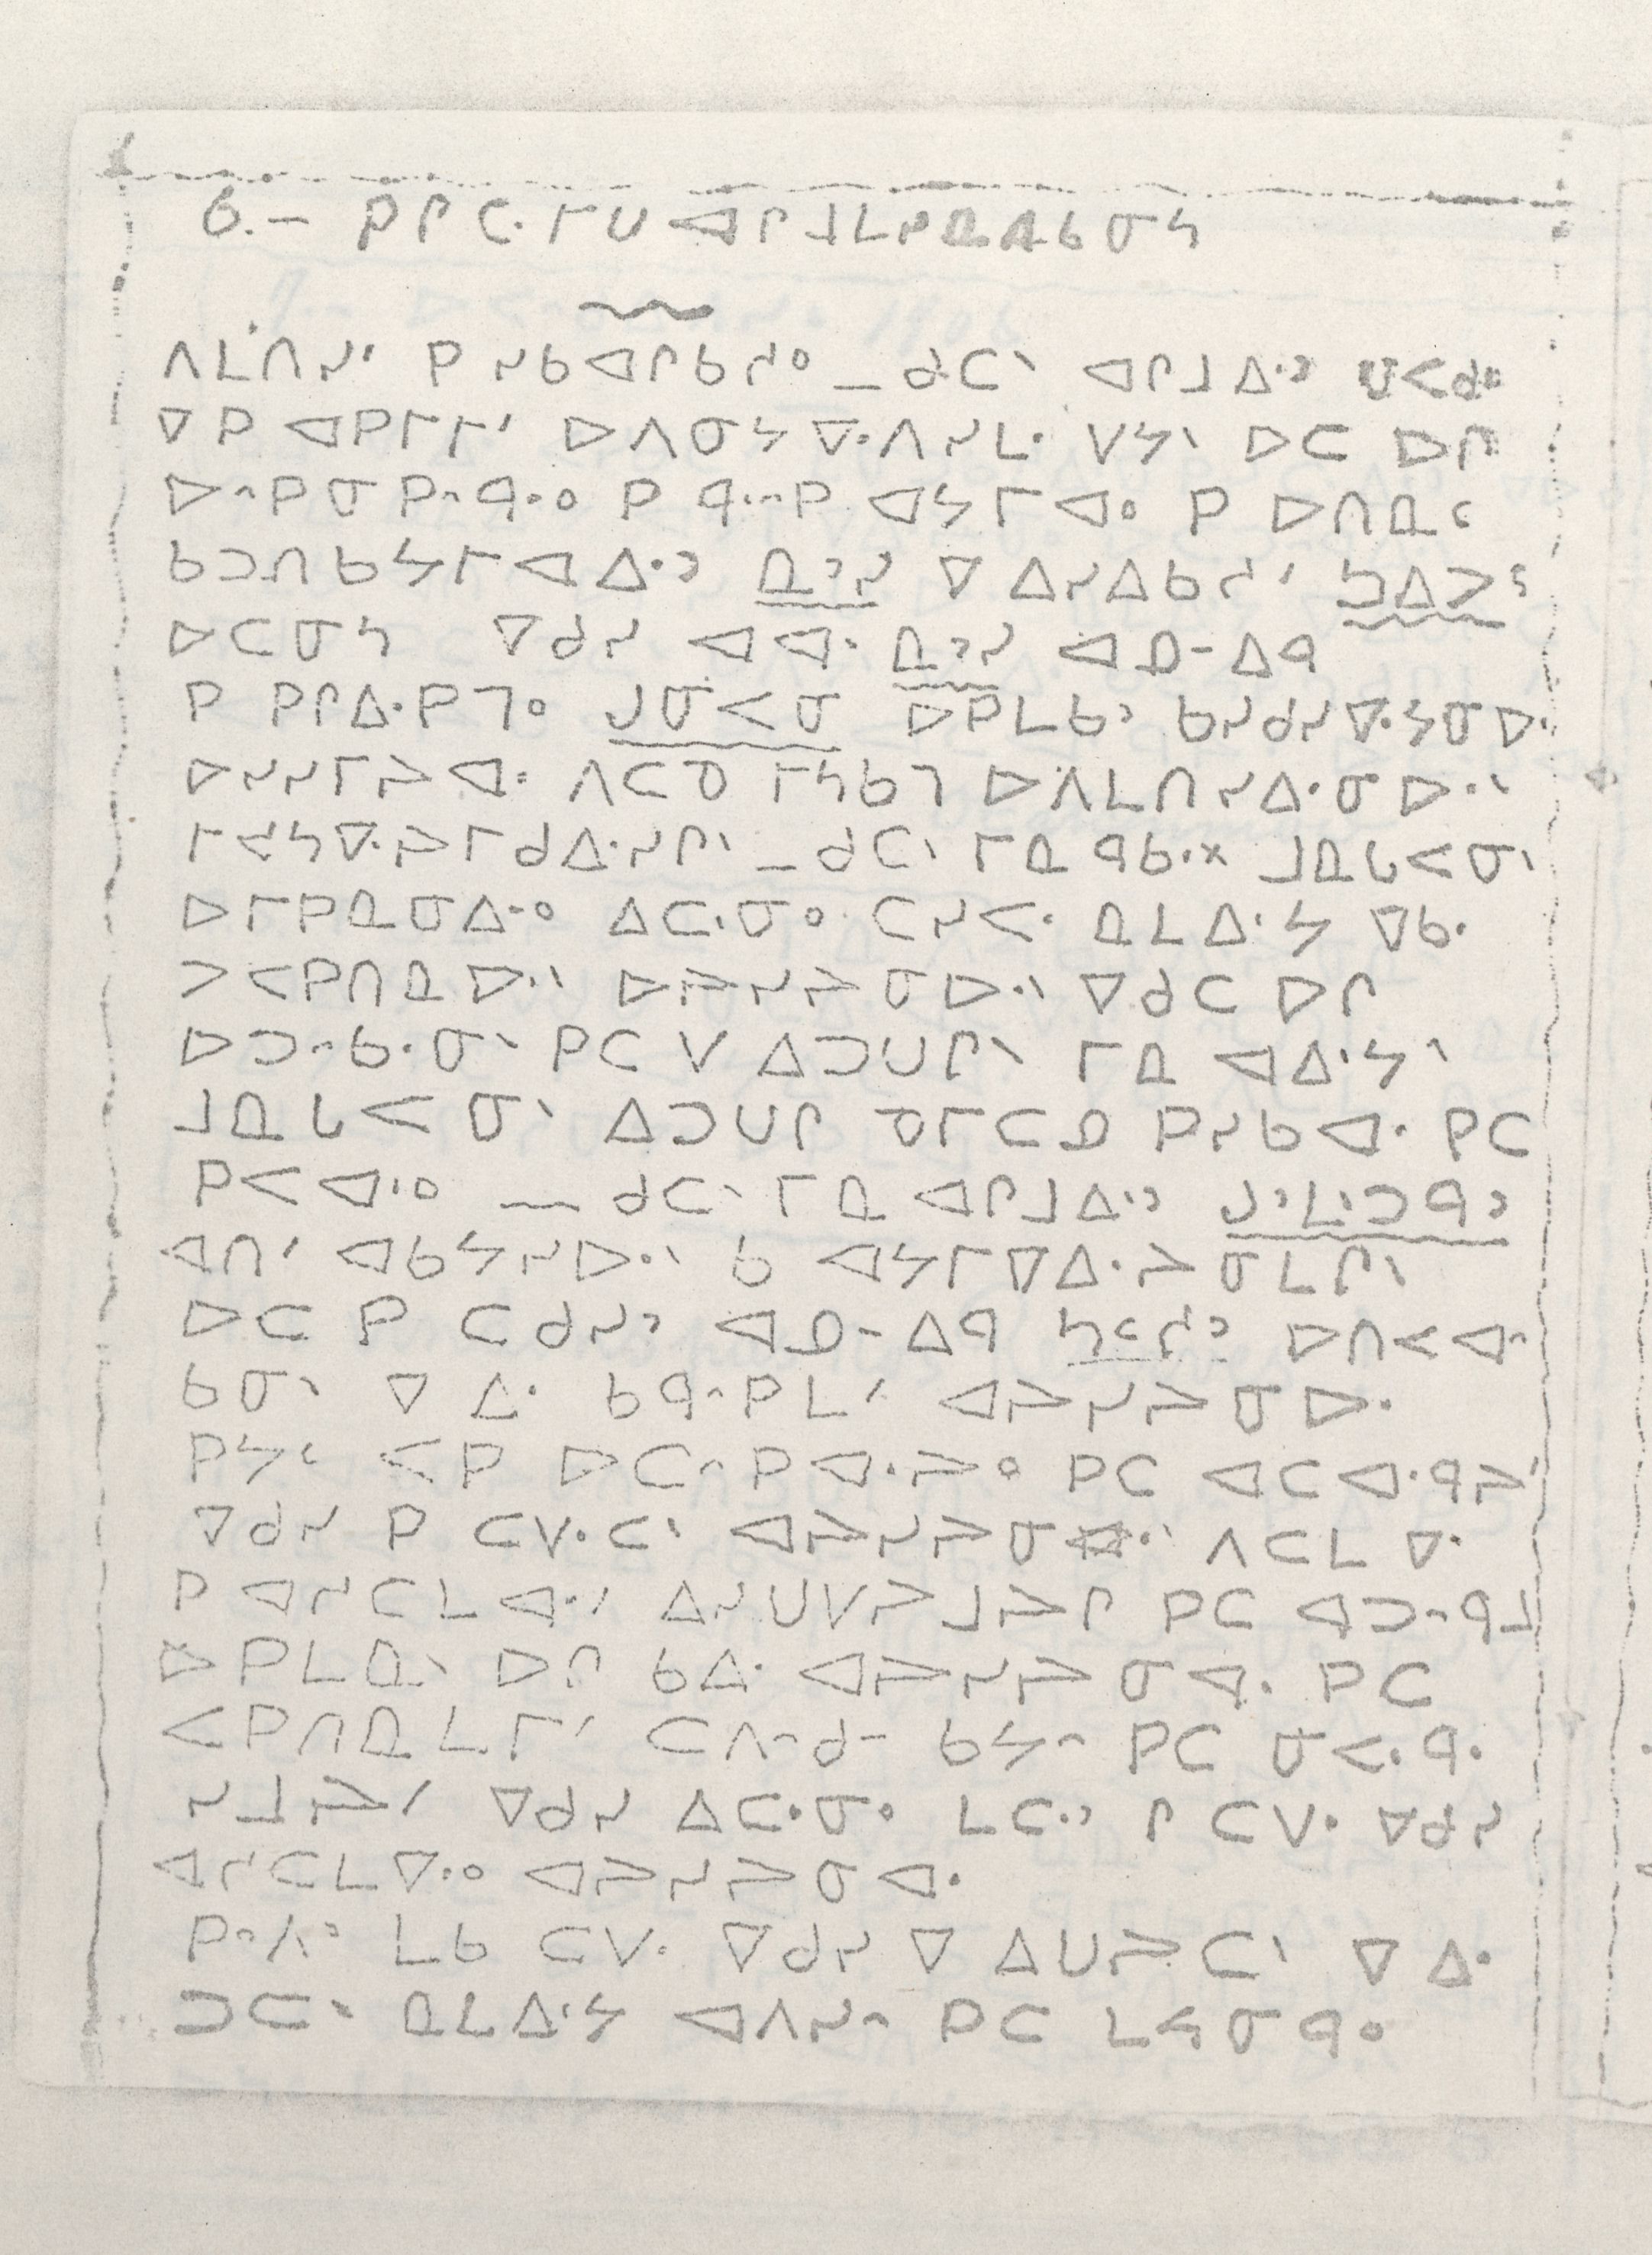 6.- ᑭᒋᑕᐧᒥᑌ ᐊᒋᒧᒪᓱᓇᐃᑲᓂᔭ
ᐱᒪᑎᓯᐟ ᑭ ᓯᑲᐊᒋᑲᓱᐤ — ᑯᑕᐠ ᐊᒋᒧᐃᐧᐣ
ᐁ ᑭ ᐊᑭᒥᒥᐟ ᐅᐱᓂᔭ ᐁᐧᐱᓯᒪᐧ ᐯᔭᐠ ᐅᑕ ᐅᒋ
ᐅᐢᑭᓂᑭᐢᑫᐧᐤ ᑭ ᑫᐧᐢᑭ ᐊᔭᒥᐊᐤ ᑭ ᐅᑎᓇᑦ
ᑲᑐᑎᑲᔭᒥᐊᐃᐧᐣ ᓇᐣᓯ ᐁ ᐃᓯᐃᑲᓱᐟ
ᐅᑕᓂᔭ ᐁᑯᓯ ᐊᐊᐧ ᓇᐣᓯ ᐊᓄᐨ ᐃᑫ
ᑭ ᑭᒋᐃᐧᑭᒣᐤ ᒍᓂᐸᓂ ᐅᑭᒪᑲᐣ ᑲᓯᑯᓯᐁᐧᔭᓂᐅᐧ
ᐅᓯᓯᒥᔨᐊᐧ ᐱᑕᓄ ᒥᔭᑲᒣ ᐅᐱᒪᑎᓯᐃᐧᓂᐅᐧᐠ
ᒥᓱᔭᐁᐧᔨᒥᑯᐃᐧᓯᒋᐠ — ᑯᑕᐠ ᒥᓇ ᑫᑲᐧ᙮ ᒧᓇᒐᐸᓂᐠ
ᐅᒥᑭᓇᓂᐃᐧᐤ ᐃᑕᐧᓂᐤ ᑕᓯᐸᐧ ᓇᒪᐃᐧᔭ ᐁᑲᐧ
ᐳᐸᑭᑎᓇᐅᐧᐠ ᐅᔨᓯᔨᓂᐅᐧᐠ ᐁᑯᑕ ᐅᒋ
ᐅᑐᐢᑲᐧᓂᐠ ᑭᑕ ᐯ ᐃᑐᑌᒋᐠ ᒥᓇ ᐊᐃᐧᔭᐠ
ᒧᓇᒐᐸᓂᐠ ᐃᑐᑌᒋ ᓄᒥᑕᓄ ᑭᓯᑲᐊᐧ ᑭᑕ
ᑭᐸᐊᐧᐤ — ᑯᑕᐠ ᒥᓇ ᐊᒋᒧᐃᐧᐣ ᒍᐣᒪᐠᑐᑫᐣ
ᐊᑎᐟ ᐊᑲᔭᓯᐅᐧᐠ ᑲ ᐊᔭᒥᐁᐃᐧᔨᓂᒪᒋᐠ
ᐅᑕ ᑭ ᑕᑯᓯᐣ ᐊᓄᐨ ᐃᑫ ᐅᑎᐸᐊᐧᐢ
ᑲᓂᐠ ᐁ ᐃᐧ ᑲᑫᐢᑭᒪᐟ ᐊᔨᓯᔨᓂᐅᐧ
ᑭᔭᑦ ᐸᑭ ᐅᑕᐢᑭᐊᐧᔨᐤ ᑭᑕ ᐊᑕᐊᐧᑫᔨᐟ
ᐁᑯᓯ ᑭ ᑕᐯᐧᑕᐠ ᐊᔨᓯᔨᓂᐊᐧᐠ ᐱᑕᒪ ᐁᐧ
ᑭ ᐊᓱᑕᒪᐊᐧᐟ ᐃᓯᑌᐯᔨᒧᔨᒋ ᑭᑕ ᐊᑐᐢᑫᒧ
ᐅᑭᒪᓇᐠ ᐅᒋ ᑲᐃᐧ ᐊᔨᓯᔨᓂᐊᐧ ᑭᑕ
ᐸᑭᑎᓇᒪᒥᐟ ᑕᐱᐢᑯᐨ ᑲᔭᐢ ᑭᑕ ᓂᐸᐧᑫᐧ
ᓯᒧᔨᐟ ᐁᑯᓯ ᐃᑕᐧᓂᐤ ᒪᑕᐧᐣ ᒋ ᑕᐯᐧ ᐁᑯᓯ
ᐊᓱᑕᒪᐁᐧᐤ ᐊᔨᓯᔨᓂᐊᐧ
ᑭᐢᐱᐣ ᒪᑲ ᑕᐯᐧ ᐁᑯᓯ ᐁ ᐃᑌᔨᑕᐠ ᐁ ᐃᐧ
ᑐᑕᐠ ᓇᒪᐃᐧᔭ ᐊᐱᓯᐢ ᑭᑕ ᒪᔭᓂᑫᐤ